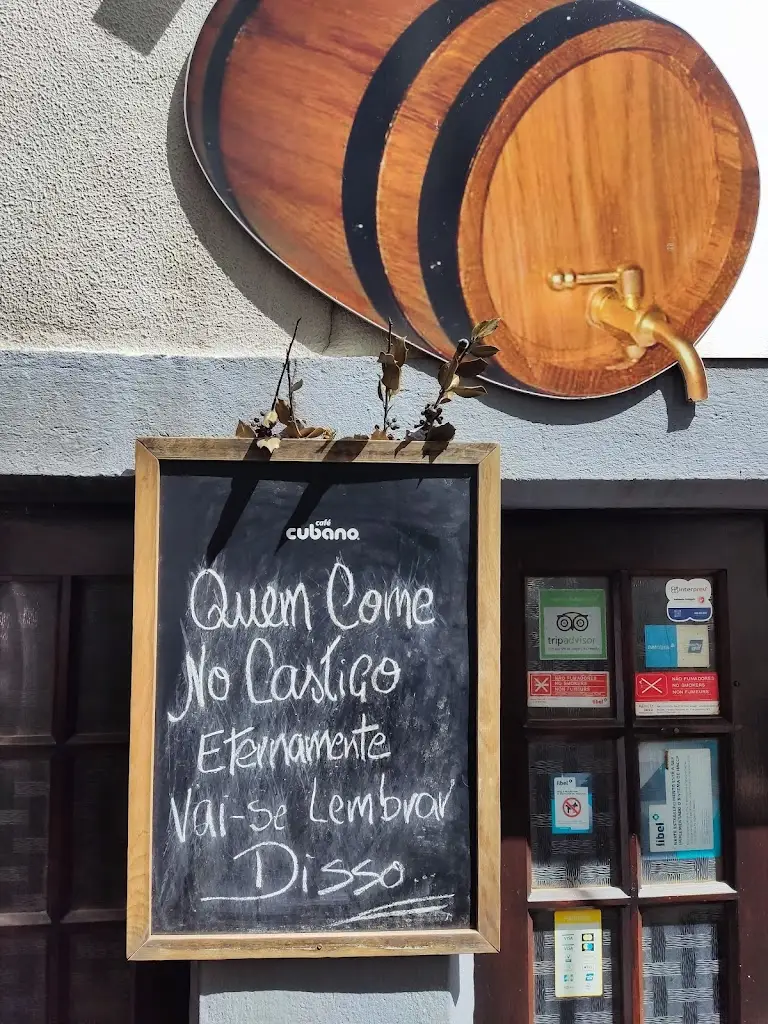 café
cubano
Quem Come
No Castiço
Eternamente
Vai-se Lembrar
Disso...
tripadvisor
NÃO FUMADORES
NO SMOKERS
NON FUMEURS
NÃO FUMADORES
NO SMOKERS
NON FUMEURS
libel
libel
VISA